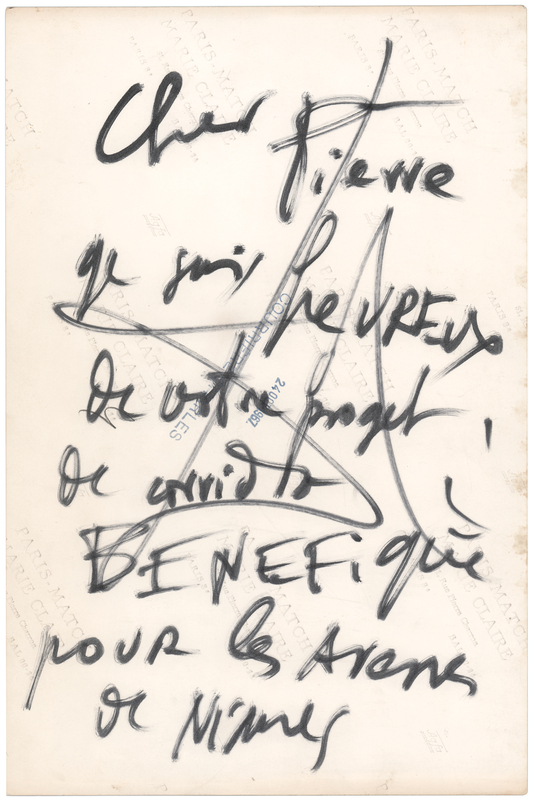 Cher Pierre
je suis heUREUx
de votre projet
de corrida
BENEFiquè
pOUR les Arenes
de Nimes
PARIS-MATCH
MARIE CLAIRE
PARIS-MATCH
MARIE CLAIRE
PARIS-MATCH
MARIE CLAIRE
PARIS-MATCH
MARIE CLAIRE